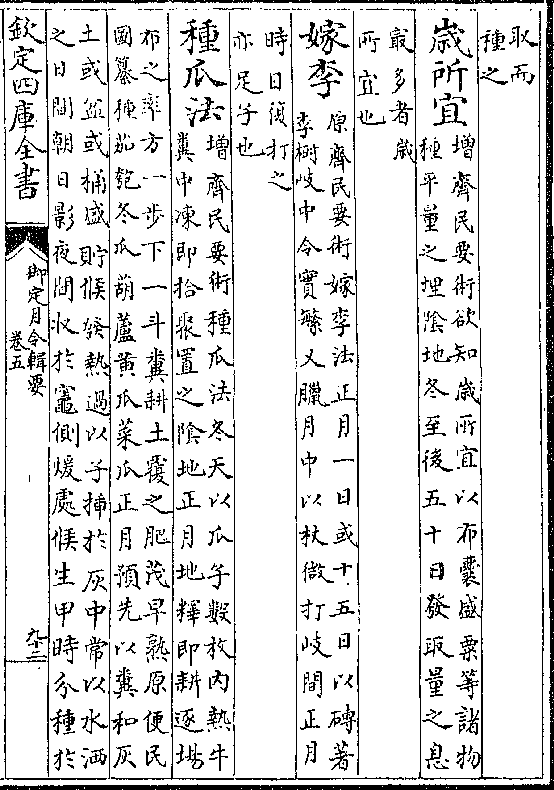 取而
種之
歲所宜
增齊民要術欲知歲所宜以布囊盛粟等諸物
種平量之埋陰地冬至後五十日發取量之息
最多者歲
所宜也
嫁李
原齊民要術嫁李法正月一日或十五日以磚著
李樹岐中令實繁又臘月中以杖微打岐間正月
時日復打之
亦足子也
種瓜法
增齊民要術種瓜法冬天以瓜子數枚內熱牛
糞中凍即拾聚置之陰地正月地釋即耕逐場
布之率方一步下一斗糞耕土覆之肥茂早熟原便民
圖纂種茄匏冬瓜葫蘆黄瓜菜瓜正月預先以糞和灰
土或盆或桶盛貯候發熱過以子揷於灰中常以水洒
之日間朝日影夜間收於竈側煖處候生甲時分種於
欽定四庫全書
御定月令輯要
卷五
九十三